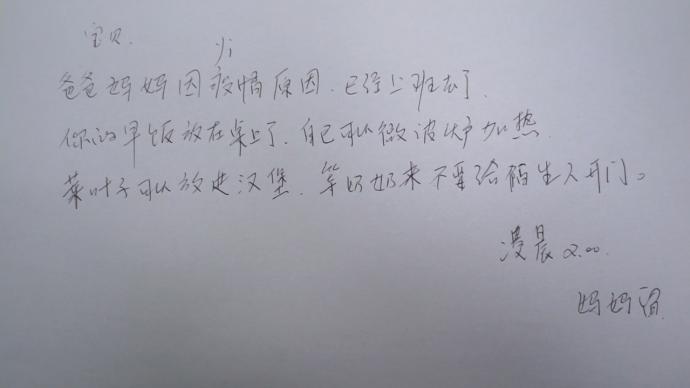 宝贝.
yi
爸爸妈妈因疫情原因.已经上班去了.
你的早饭放在桌上了.自己可以微波炉加热.
菜叶子可以放进汉堡.等奶奶来不要给陌生人开门。
凌晨2:00.
妈妈留.